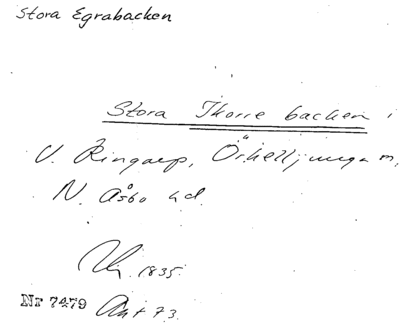 Stora Egrabacken
Stora Ikorre backen i
V. Ringarp, Örkelljunga m,
N. Åsbo hd.
1835.
Nr 7479 Ant 73.